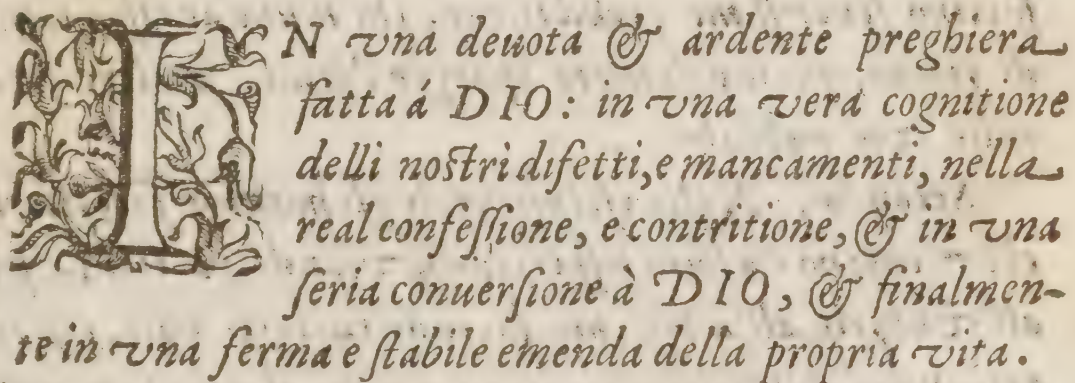 IN vna deuota & ardente preghiera
fatta á DIO: in vna vera cognitione
delli nostri difetti, e mancamenti, nella
real confessione, e contritione, & in vna
seria conuersione à DIO, & finalmen-
te in vna ferma e stabile emenda della propria vita.